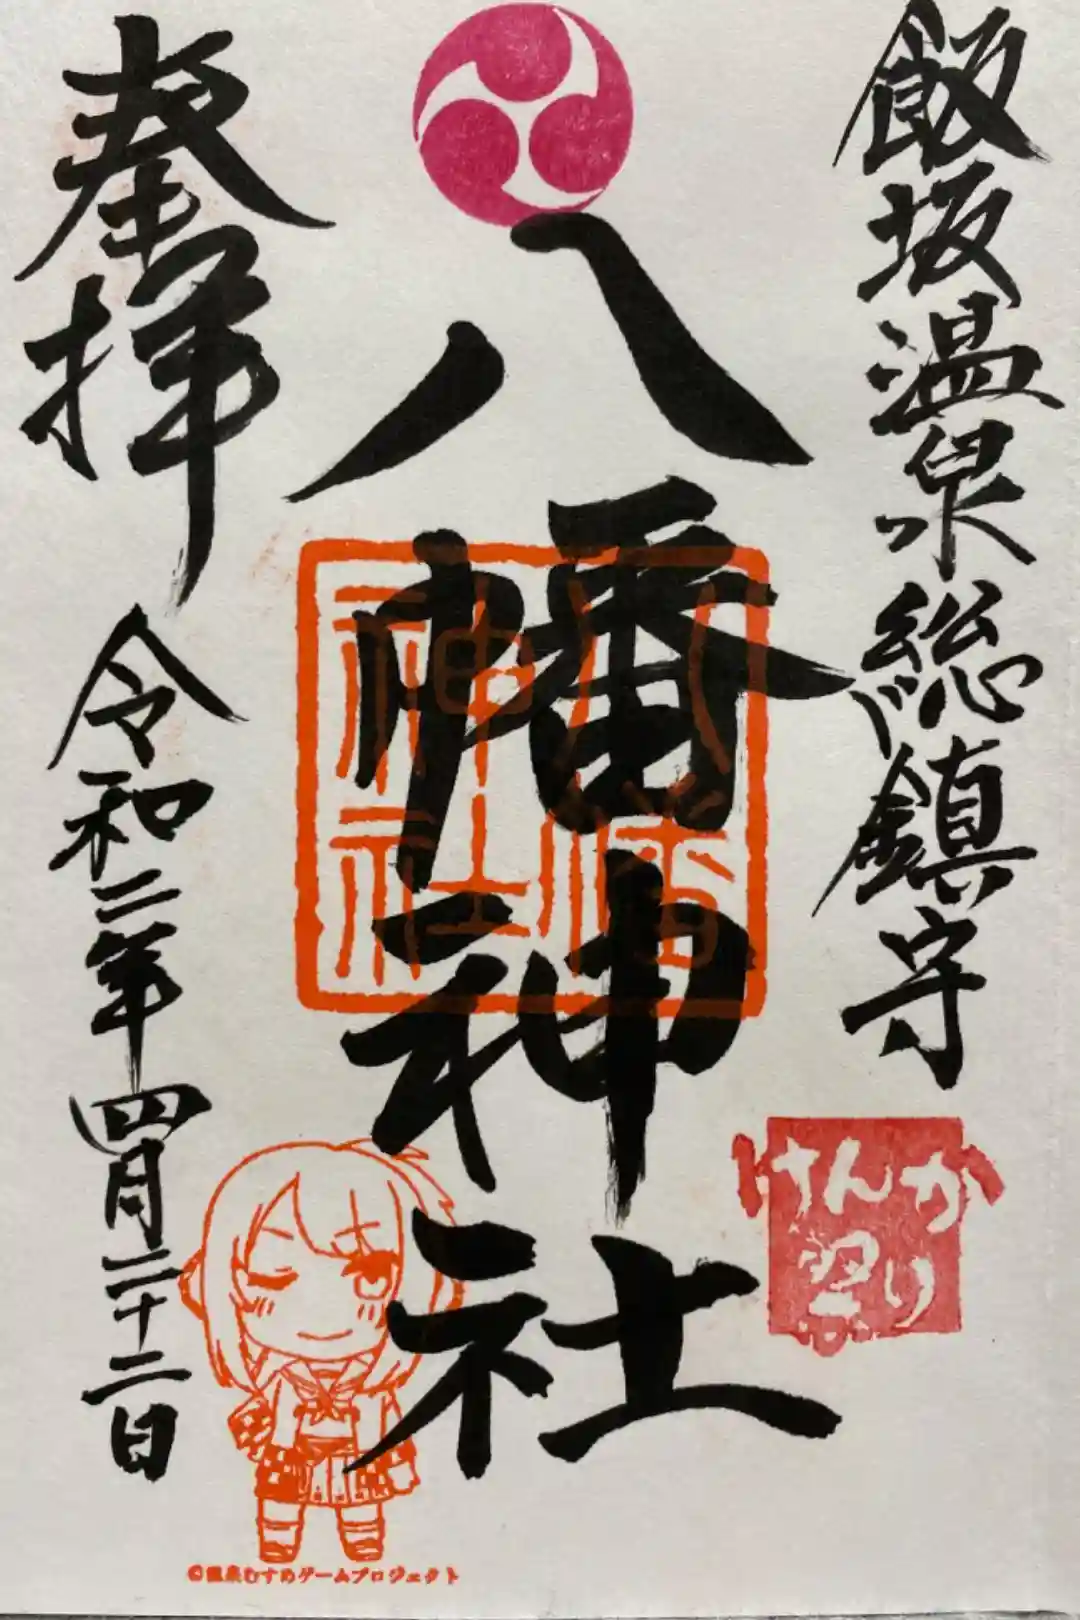 飯坂温泉総鎮守
けんか
祭り
八幡神社
八幡
神社
奉拝
令和二年四月二十二日
©温泉むすめゲームプロジェクト